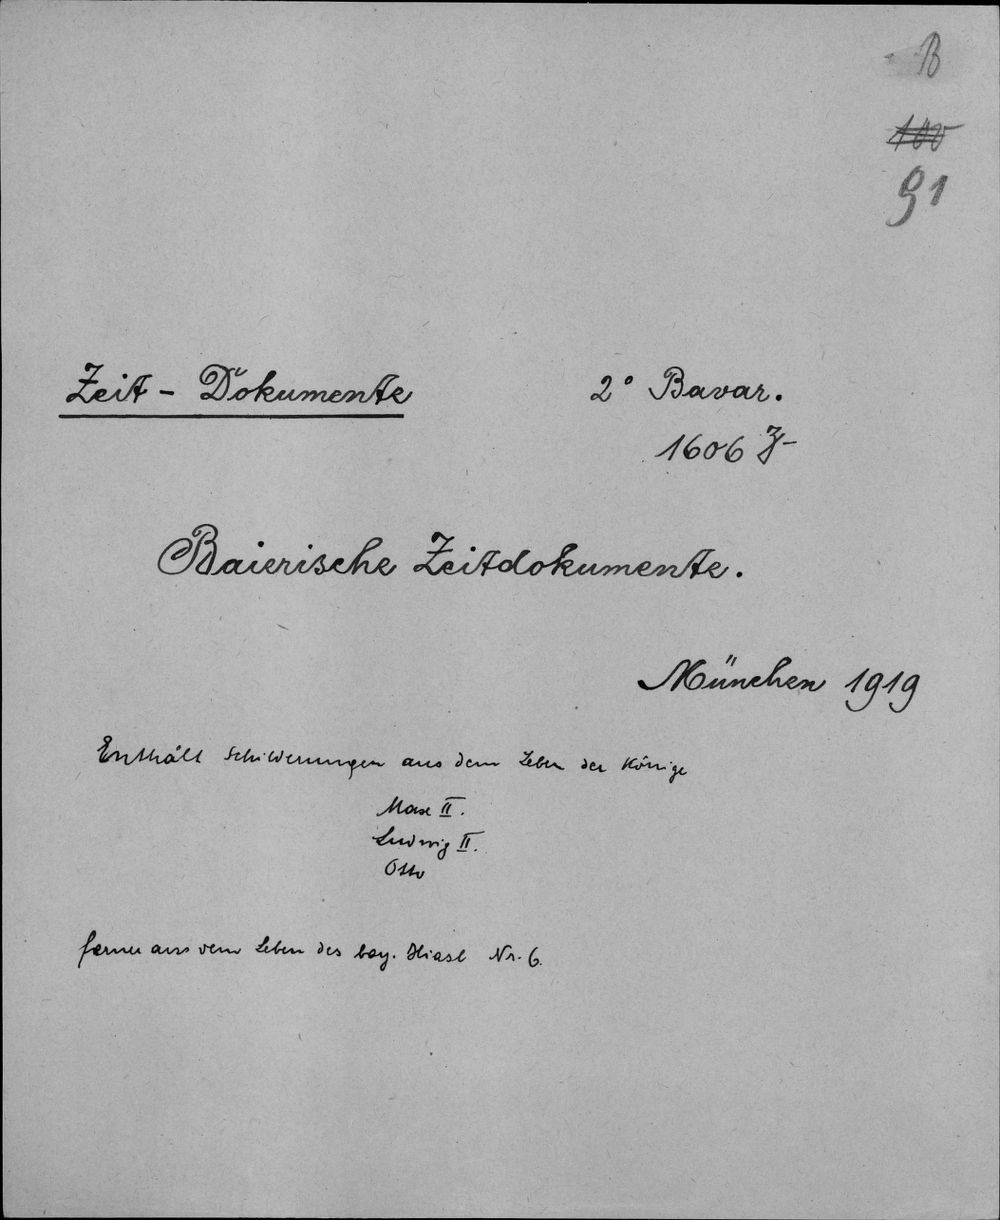 B
100
91
Zeit - Dokumente 2° Bavar.
1606 Z-
Baierische Zeitdokumente.
München 1919
Enthält Schilderungen aus dem Leben der Könige
Max II.
Ludwig II.
Otto
ferner aus dem Leben des bay. Hiasl Nr. 6.